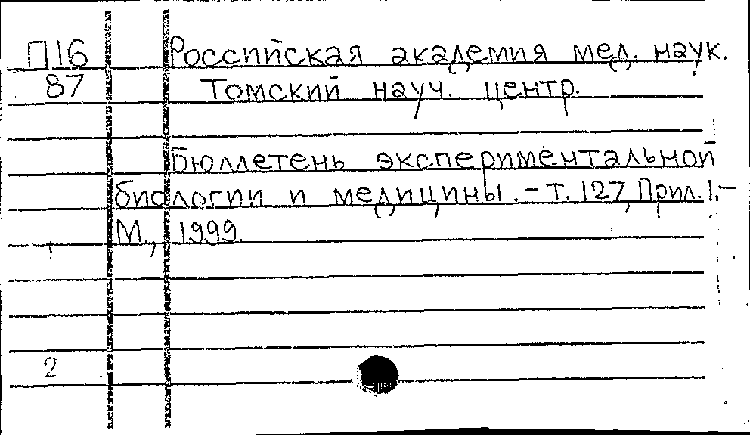 П16 Российская академия мед. наук.
87 Томский науч. центр.
Бюллетень экспериментальной
биологии и медицины. - Т. 127, Прил. 1. -
М., 1999.
2